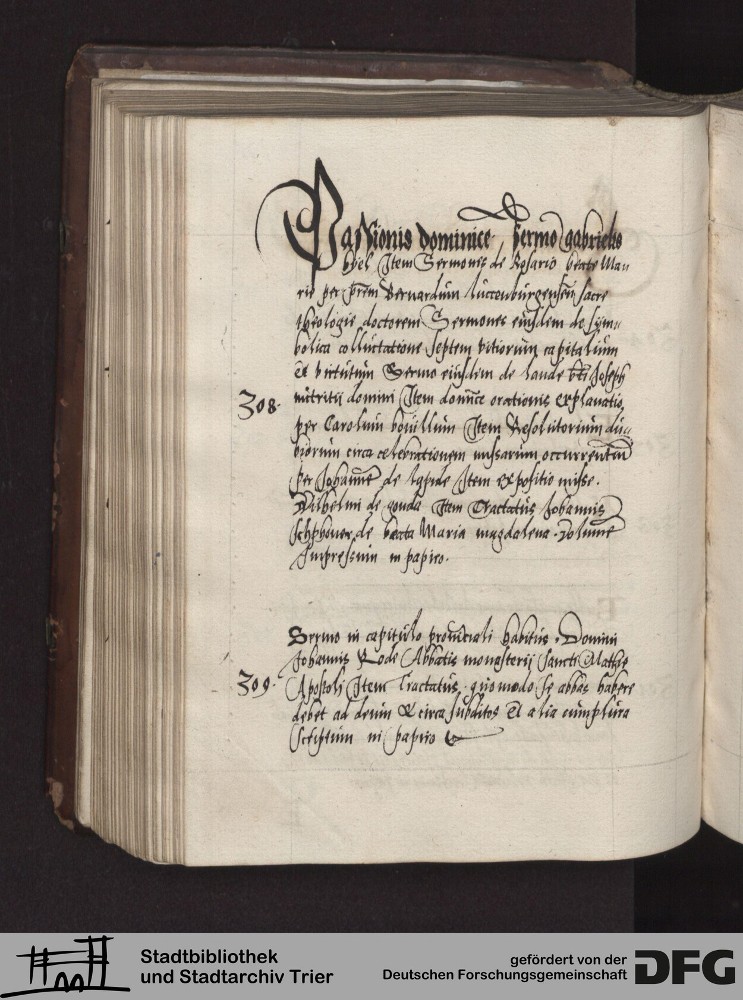 Passionis dominice. Sermo gabrielis
byel Item Sermonis de Rosario beate Ma-
rie per frem Bernardum luccenburgensem sacre
theologie doctorem Sermones eiusdem de sym-
bolica colluctatione septem vitiorum capitalium
Et virtutum Sermo eiusdem de laude bti Joseph
308. nutritij domini Item donice orationis explanatio
per Carolum bouillum Item Resolutorium du-
biorum circa celebrationem missarum occurrentiu
per Johanne de lapide Item expositio misse.
Wilhelmi de gouda Item Tractatus Johannis
de beata Maria magdalena. Volume
Impressum in papiro.
Sermo in capitulo provinciali habitus. Domini
Johannis Rode Abbatis monasterij sancti Mathie
309. Apostoli Item Tractatus quomodo se abbas habere
debet ad deum & circa subditos Et alia cumplura
Scriptum in papiro
Stadtbibliothek
und Stadtarchiv Trier
gefördert von der
Deutschen Forschungsgemeinschaft
DFG